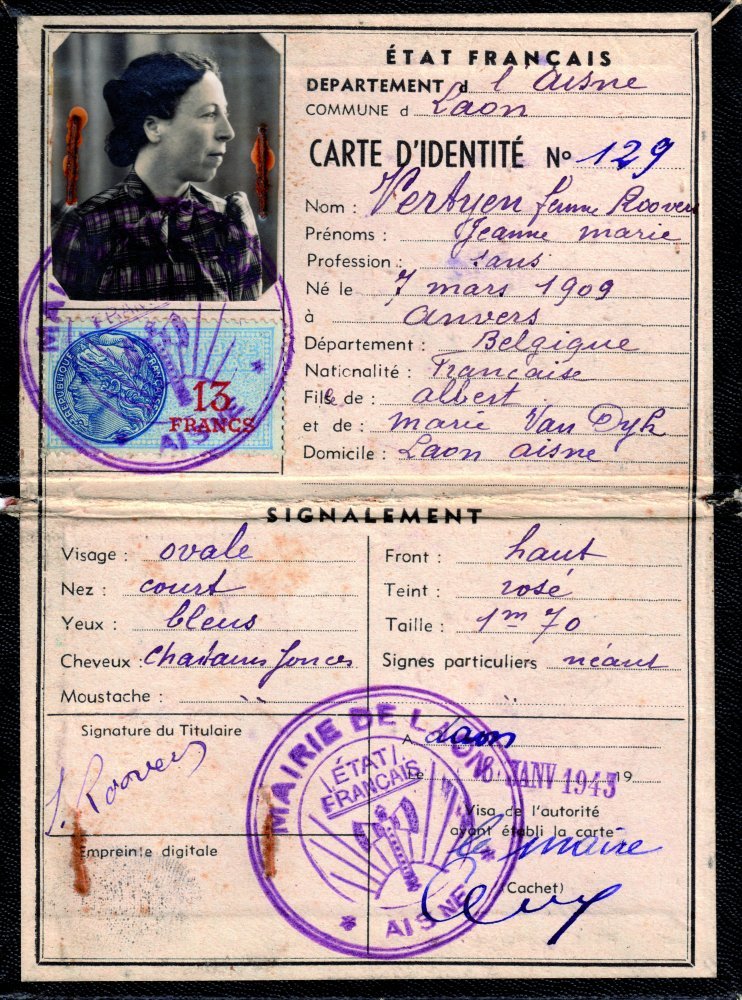 ÉTAT FRANÇAIS
DEPARTEMENT d l'Aisne
COMMUNE d Laon
CARTE D'IDENTITÉ No 129
Nom : Vertuyen femme Roovers
Prénoms : Jeanne marie
Profession : sans
Né le 7 mars 1909
à anvers
Département : Belgique
Nationalité : Française
Fille de : albert
et de : marie Van Dyk
Domicile : Laon aisne
RÉPUBLIQUE FRANÇAISE
13
FRANCS
MAI
AISNE
SIGNALEMENT
Visage : ovale
Nez : court
Yeux : bleus
Cheveux : chatains foncés
Moustache : "
Front : haut
Teint : rosé
Taille : 1m 70
Signes particuliers néant
"
Signature du Titulaire
J. Roovers
Empreinte digitale
MAIRIE DE LAON
ÉTAT
FRANÇAIS
* AISNE *
A Laon
Le 8 JANV 1943 19
Visa de l'autorité
ayant établi la carte
Le maire
(Cachet)